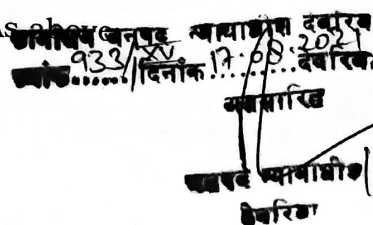 As above
कार्यालय जनपद न्यायाधीश देवरिया
पत्रांक 933/XV दिनांक 17.08.2021 देवरिया
अग्रसारित
जनपद न्यायाधीश
देवरिया